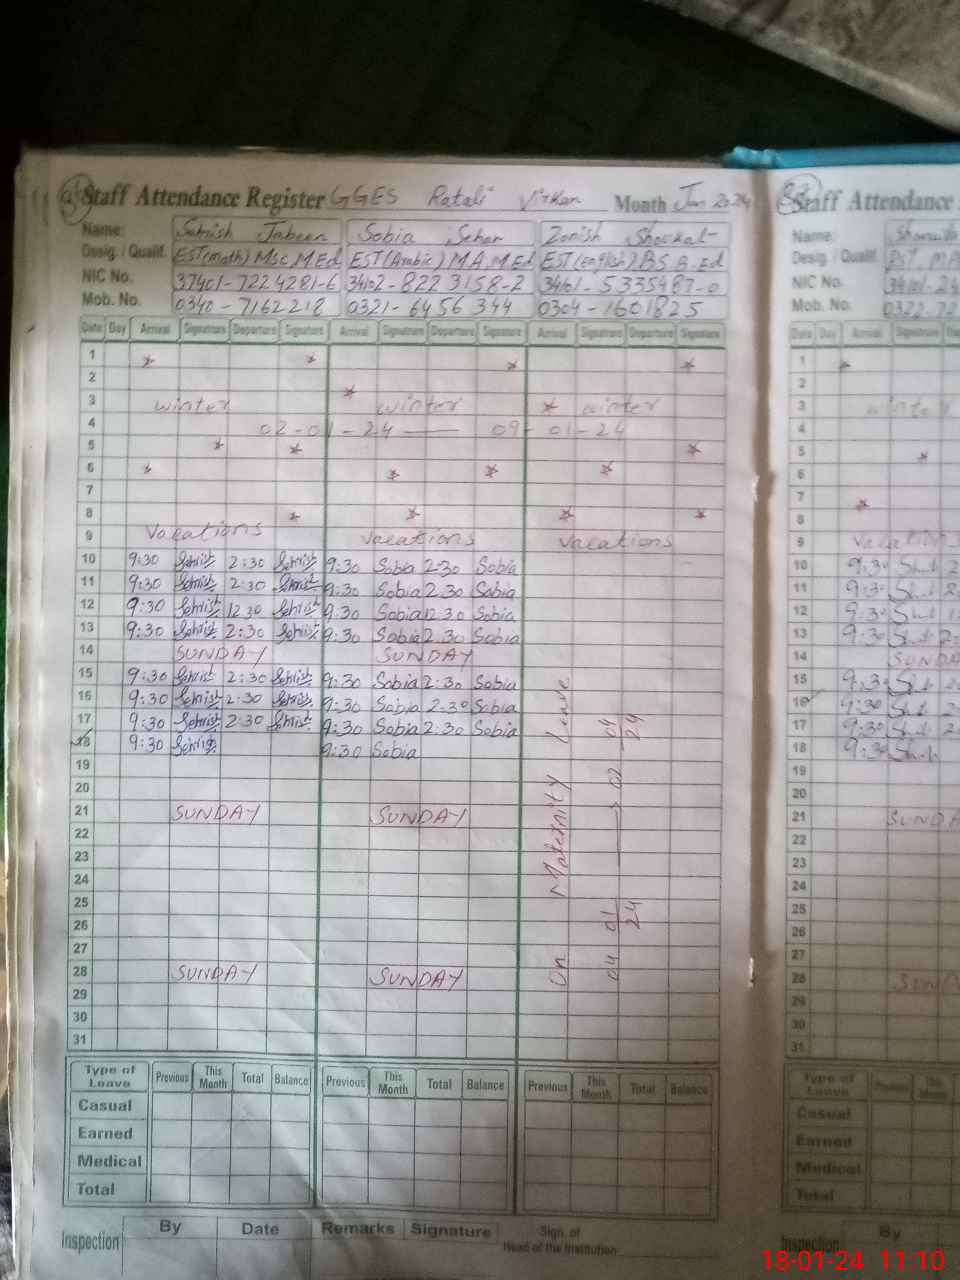 Staff Attendance Register GGES Ratali Virkan Month Jan 2024
Name: Sehrish Jabeen Sobia Sehar Zonish Shoukat
Desig. / Qualif. EST(math) Msc, M.Ed EST(Arabic) M.A, M.Ed EST(English) BS B.Ed
NIC No. 37401-7224281-6 34102-8223158-2 34101-5335487-0
Mob. No. 0340-7162218 0321-6456344 0304-1601825
Date Day Arrival Signature Departure Signature Arrival Signature Departure Signature Arrival Signature Departure Signature
1
2
3 winter winter winter
4 02-01-24 — 09-01-24
5
6
7
8
9 Vacations Vacations Vacations
10 9:30 Sehrish 2:30 Sehrish 9:30 Sobia 2:30 Sobia
11 9:30 Sehrish 2:30 Sehrish 9:30 Sobia 2:30 Sobia
12 9:30 Sehrish 12:30 Sehrish 9:30 Sobia 12:30 Sobia
13 9:30 Sehrish 2:30 Sehrish 9:30 Sobia 2:30 Sobia
14 SUNDAY SUNDAY
15 9:30 Sehrish 2:30 Sehrish 9:30 Sobia 2:30 Sobia
16 9:30 Sehrish 2:30 Sehrish 9:30 Sobia 2:30 Sobia
17 9:30 Sehrish 2:30 Sehrish 9:30 Sobia 2:30 Sobia
18 9:30 Sehrish 9:30 Sobia
19
20
21 SUNDAY SUNDAY
22
23
24
25
26
27
28 SUNDAY SUNDAY
29
30
31
On Maternity Leave
04 01 24 → 02 04 24
Type of Leave Previous This Month Total Balance Previous This Month Total Balance Previous This Month Total Balance
Casual
Earned
Medical
Total
Inspection By Date Remarks Signature Sign. of Head of the Institution
Staff Attendance
Name:
Desig. / Qualif. PST, MA
NIC No. 34101-24
Mob. No. 0322-72
Date Day Arrival Signature
1
2
3 winter
4
5
6
7
8
9 Vacations
10 9:30
11 9:30
12 9:30
13 9:30
14 SUNDA
15 9:30
16 9:30
17 9:30
18 9:30
19
20
21 SUNDA
22
23
24
25
26
27
28 SUND
29
30
31
Type of Leave Previous This Month
Casual
Earned
Medical
Total
Inspection By
18-01-24 11:10